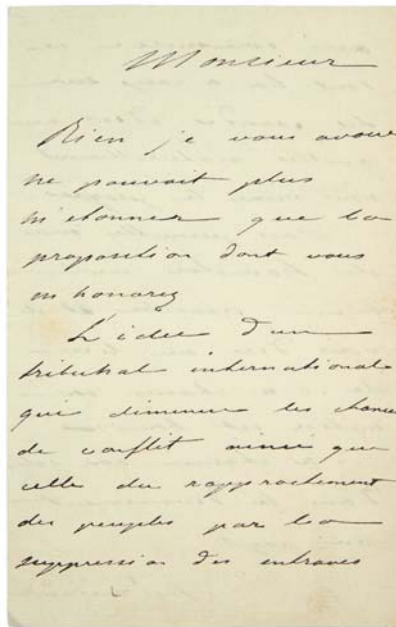 Monsieur
Rien je vous avoue
ne pouvait plus
m'etonner que la
proposition dont vous
m honorez
L'idee d'un
tribunal international
qui diminue les chances
de conflit ainsi que
celle du rapprochement
des peuples par la
suppression des entraves